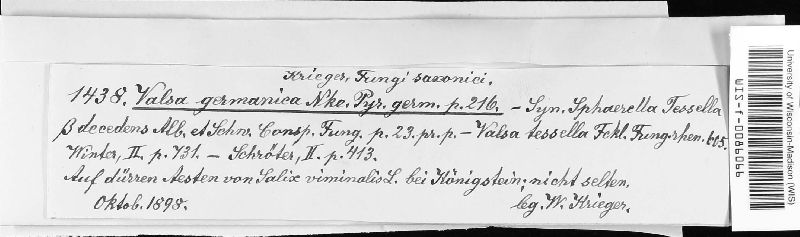 Krieger, Fungi saxonici.
1438. Valsa germanica Nke. Pyr. germ. p. 216. – Syn. Sphaerella Tessella
β decedens Alb. et Schw. Consp. Fung. p. 23. pr. p. – Valsa tessella Fckl. Fung. rhen. 605.
Winter, II. p. 731. – Schröter, II. p. 413.
Auf dürren Aesten von Salix viminalis L. bei Königstein; nicht selten.
Oktob. 1898. leg. W. Krieger.
University of Wisconsin-Madison (WIS)
WIS-f-0086066